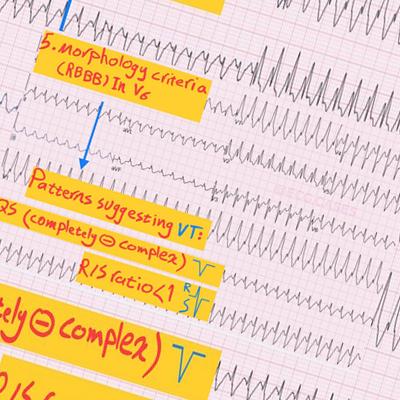 5. morphology criteria
(RBBB) In V6
Patterns suggesting VT:
QS (completely ⊖ complex)
R/S ratio<1 R
S
tely ⊖ complex)
aVL
aVF